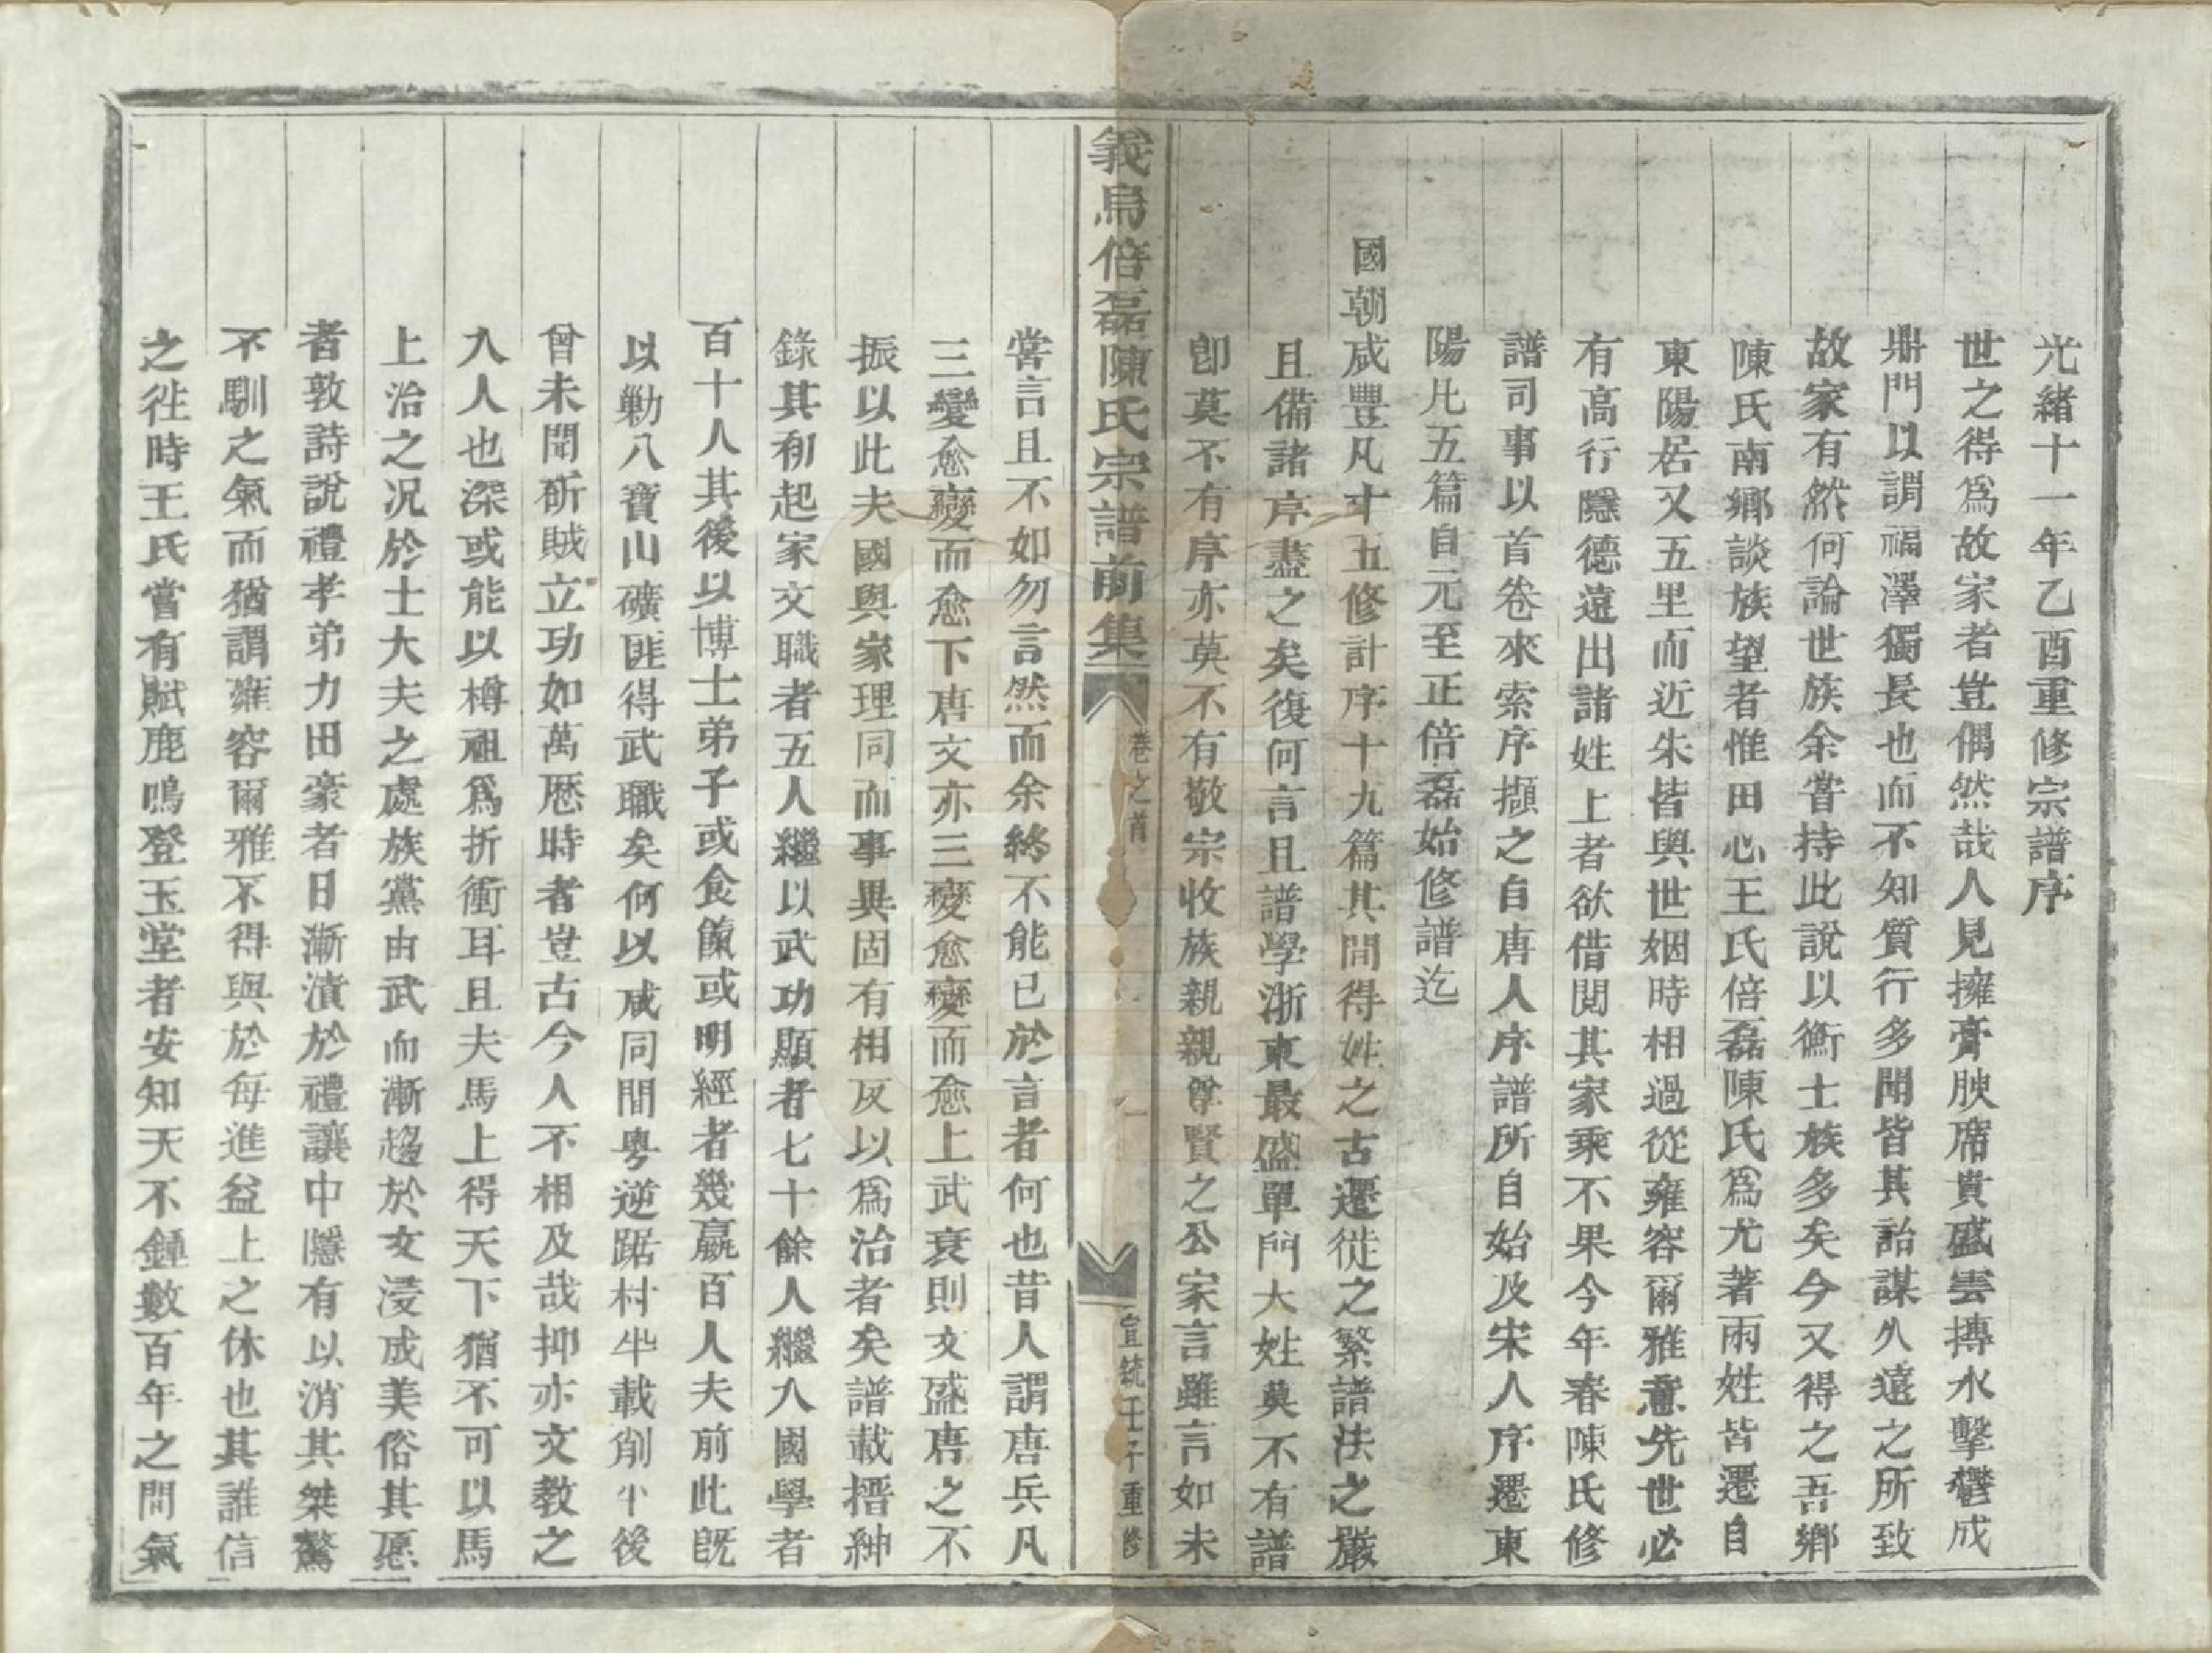 光緒十一年乙酉重修宗譜序
世之得爲故家者豈偶然哉人見擁膏腴席貴盛雲摶水擊鬱成
鼎門以謂福澤獨長也而不知質行多聞皆其詒謀久遠之所致
故家有然何論世族余嘗持此說以衡士族多矣今又得之吾鄉
陳氏南鄉談族望者惟田心王氏倍磊陳氏爲尤著兩姓皆遷自
東陽居又五里而近朱皆與世姻時相過從雍容爾雅意先世必
有高行隱德遠出諸姓上者欲借閱其家乘不果今年春陳氏修
譜司事以首卷來索序擷之自唐人序譜所自始及宋人序遷東
陽凡五篇自元至正倍磊始修譜迄
國朝咸豐凡十五修計序十九篇其間得姓之古遷徙之繁譜法之嚴
且備諸序盡之矣復何言且譜學浙東最盛單門大姓莫不有譜
卽莫不有序亦莫不有敬宗收族親親尊賢之公家言雖言如未
義烏倍磊陳氏宗譜前集
卷之首
一
宣統壬子重修
嘗言且不如勿言然而余終不能已於言者何也昔人謂唐兵凡
三變愈變而愈下唐文亦三變愈變而愈上武衰則文盛唐之不
振以此夫國與家理同而事異固有相反以爲治者矣譜載搢紳
錄其初起家文職者五人繼以武功顯者七十餘人繼入國學者
百十人其後以博士弟子或食餼或明經者幾嬴百人夫前此旣
以勦八寶山礦匪得武職矣何以咸同間粵逆踞村半載削平後
曾未聞斫賊立功如萬歷時者豈古今人不相及哉抑亦文教之
入人也深或能以樽俎爲折衝耳且夫馬上得天下猶不可以馬
上治之况於士大夫之處族黨由武而漸趨於文浸成美俗其愿
者敦詩說禮孝弟力田豪者日漸漬於禮讓中隱有以消其桀驁
不馴之氣而猶謂雍容爾雅不得與於每進益上之休也其誰信
之徃時王氏嘗有賦鹿鳴登玉堂者安知天不鍾數百年之間氣